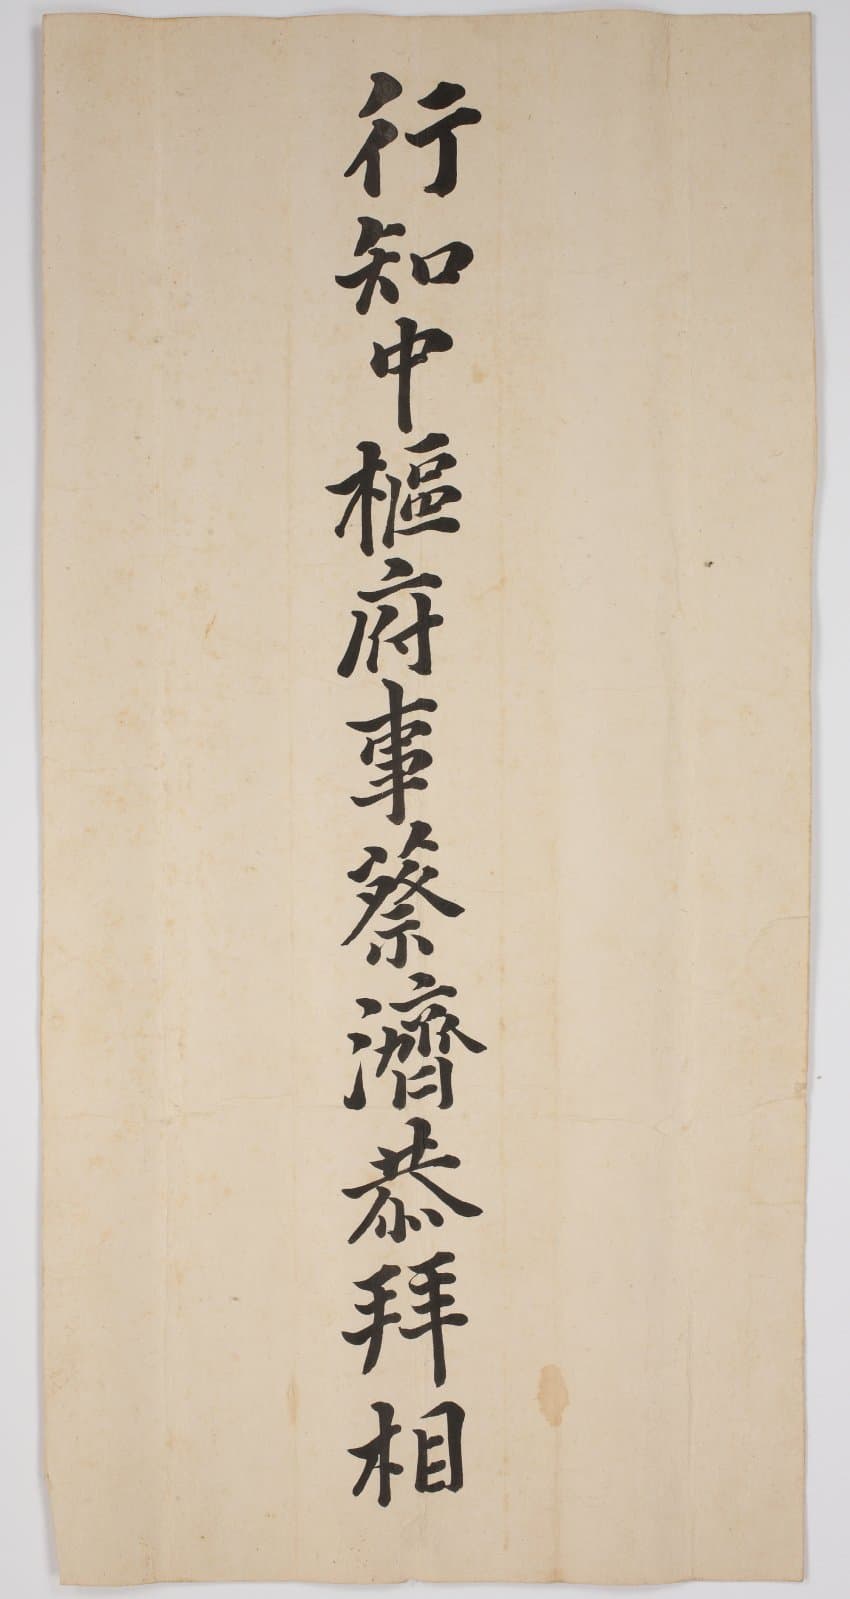 行知中樞府事蔡濟恭拜相